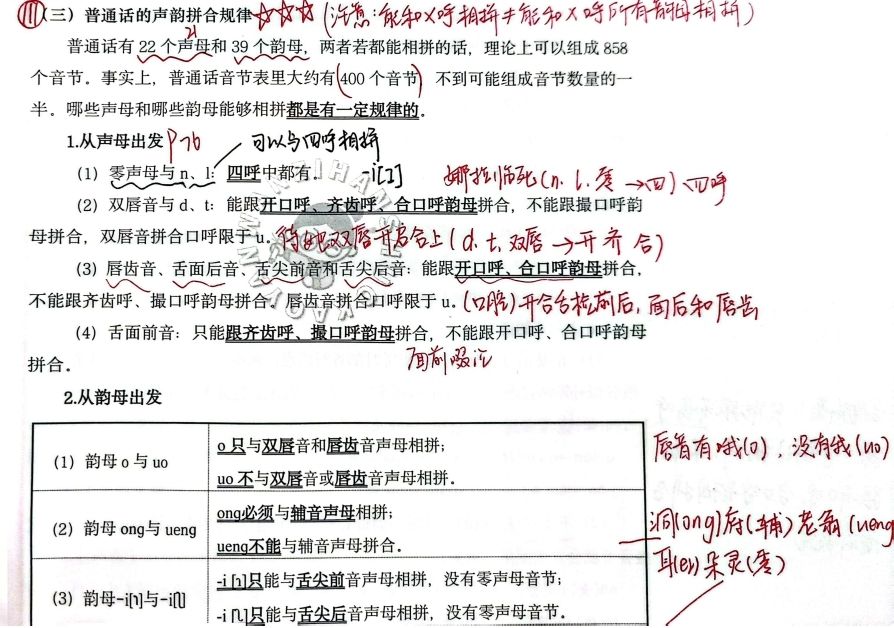 (三)普通话的声韵拼合规律☆☆☆(注意:能和X呼相拼≠能和X呼所有韵母相拼)
21
普通话有 22 个声母和 39 个韵母，两者若都能相拼的话，理论上可以组成 858
个音节。事实上，普通话音节表里大约有 400 个音节，不到可能组成音节数量的一
半。哪些声母和哪些韵母能够相拼都是有一定规律的。
1.从声母出发 P76 可以与四呼相拼
（1）零声母与 n、l：四呼中都有。 -i[ɿ] 娜拉临死(n.l.零→四)四呼
（2）双唇音与 d、t：能跟开口呼、齐齿呼、合口呼韵母拼合，不能跟撮口呼韵
母拼合，双唇音拼合口呼限于 u。 把双唇开启合上(d.t.双唇→开齐合)
（3）唇齿音、舌面后音、舌尖前音和舌尖后音：能跟开口呼、合口呼韵母拼合，
不能跟齐齿呼、撮口呼韵母拼合。唇齿音拼合口呼限于 u。(口腔)开合舌尖前后，面后和唇齿
（4）舌面前音：只能跟齐齿呼、撮口呼韵母拼合，不能跟开口呼、合口呼韵母
拼合。 面前啜泣
2.从韵母出发
（1）韵母 o 与 uo
o 只与双唇音和唇齿音声母相拼；
uo 不与双唇音或唇齿音声母相拼。
唇音有哦(o)，没有我(uo)
（2）韵母 ong与 ueng
ong必须与辅音声母相拼；
ueng不能与辅音声母拼合。
洞(ong)府(辅)老翁(ueng
耳(er)朵灵(零)
（3）韵母-i[ɿ]与-i[ʅ]
-i [ɿ]只能与舌尖前音声母相拼，没有零声母音节；
-i [ʅ]只能与舌尖后音声母相拼，没有零声母音节。